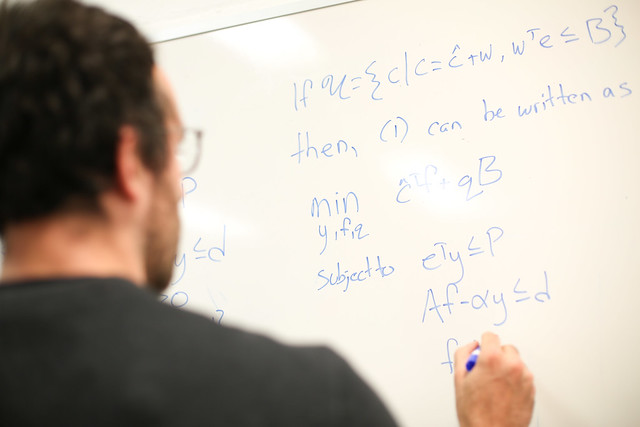 If U = {c | c = ĉ + w, wᵀe ≤ B}
then, (1) can be written as
min ĉᵀf + qB
y,f,q
subject to eᵀy ≤ P
Af - αy ≤ d
f
y ≤ d